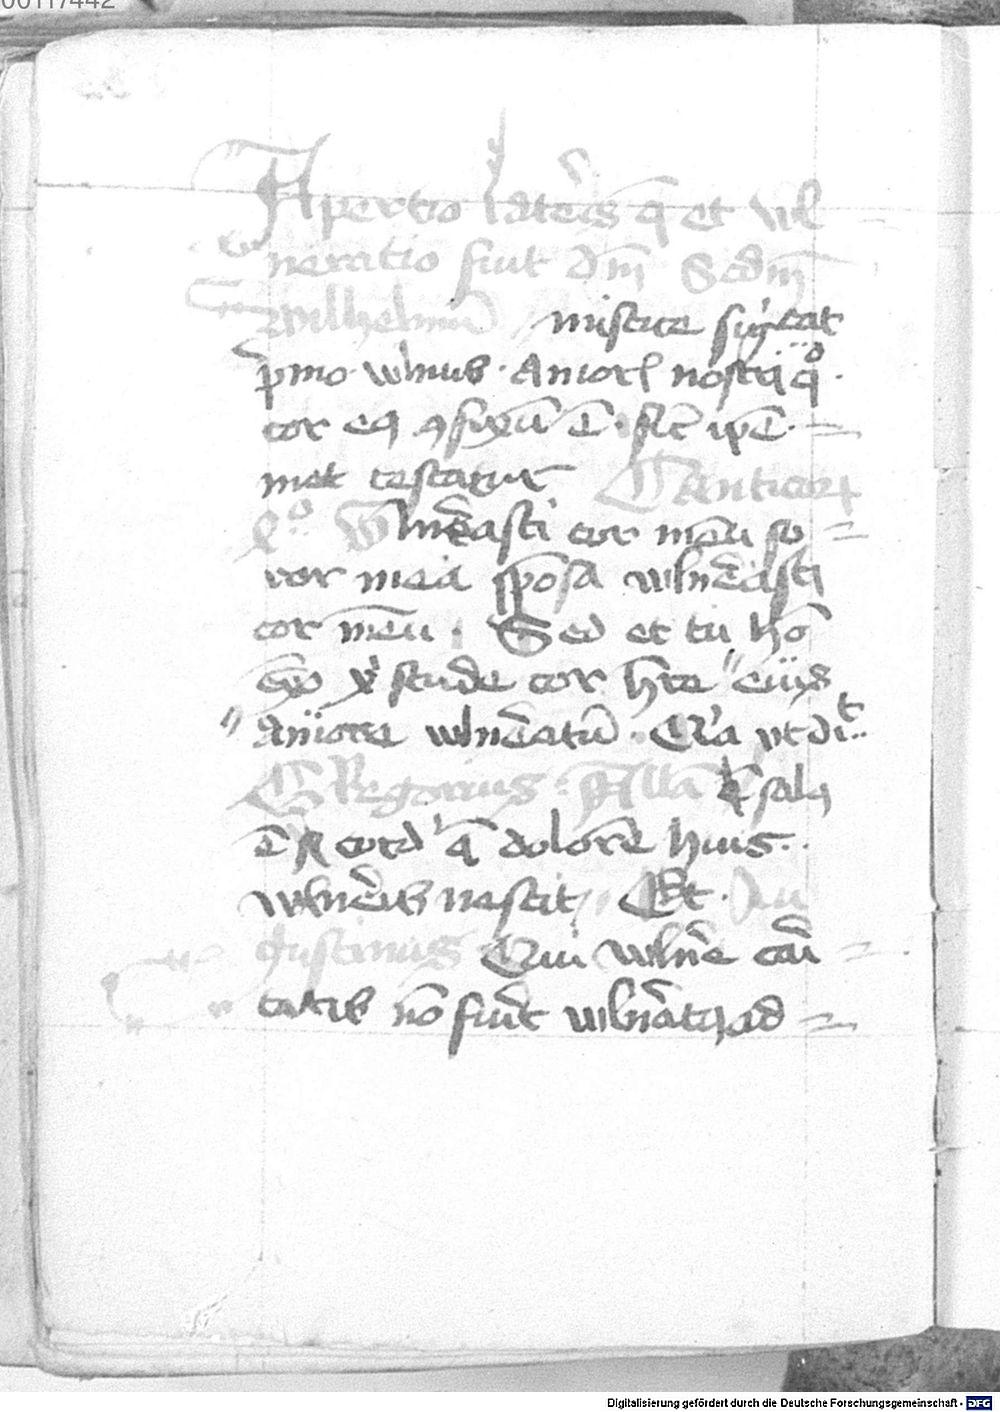 00117442
Apertio lateris q̄ et vul
neratio fuit dn̄i Scd̄m
wilhelmū mistice sig̾cat
p̄mo vulnus · Amoris nostri qͦ ·
cor eiꝰ ꝯfixū ē · sic̄ ip̄e
met testatur Canticorꝝ
vulnēasti cor meū so
ror mea sposa vulnēasti
cor meū · Sed et tu hō
stude cor h̄re eiꝰ
Amore vulnēatū · Q̄ia vt dit
Gregorius · Nulla salꝰ
ē ī cord̾ q̄ dolorē huiꝰ
vulneris nescit Et · Au
gustinus Qui vulnē cari
tatis nō fuēit vulnēatꝰ ad
Digitalisierung gefördert durch die Deutsche Forschungsgemeinschaft - DFG